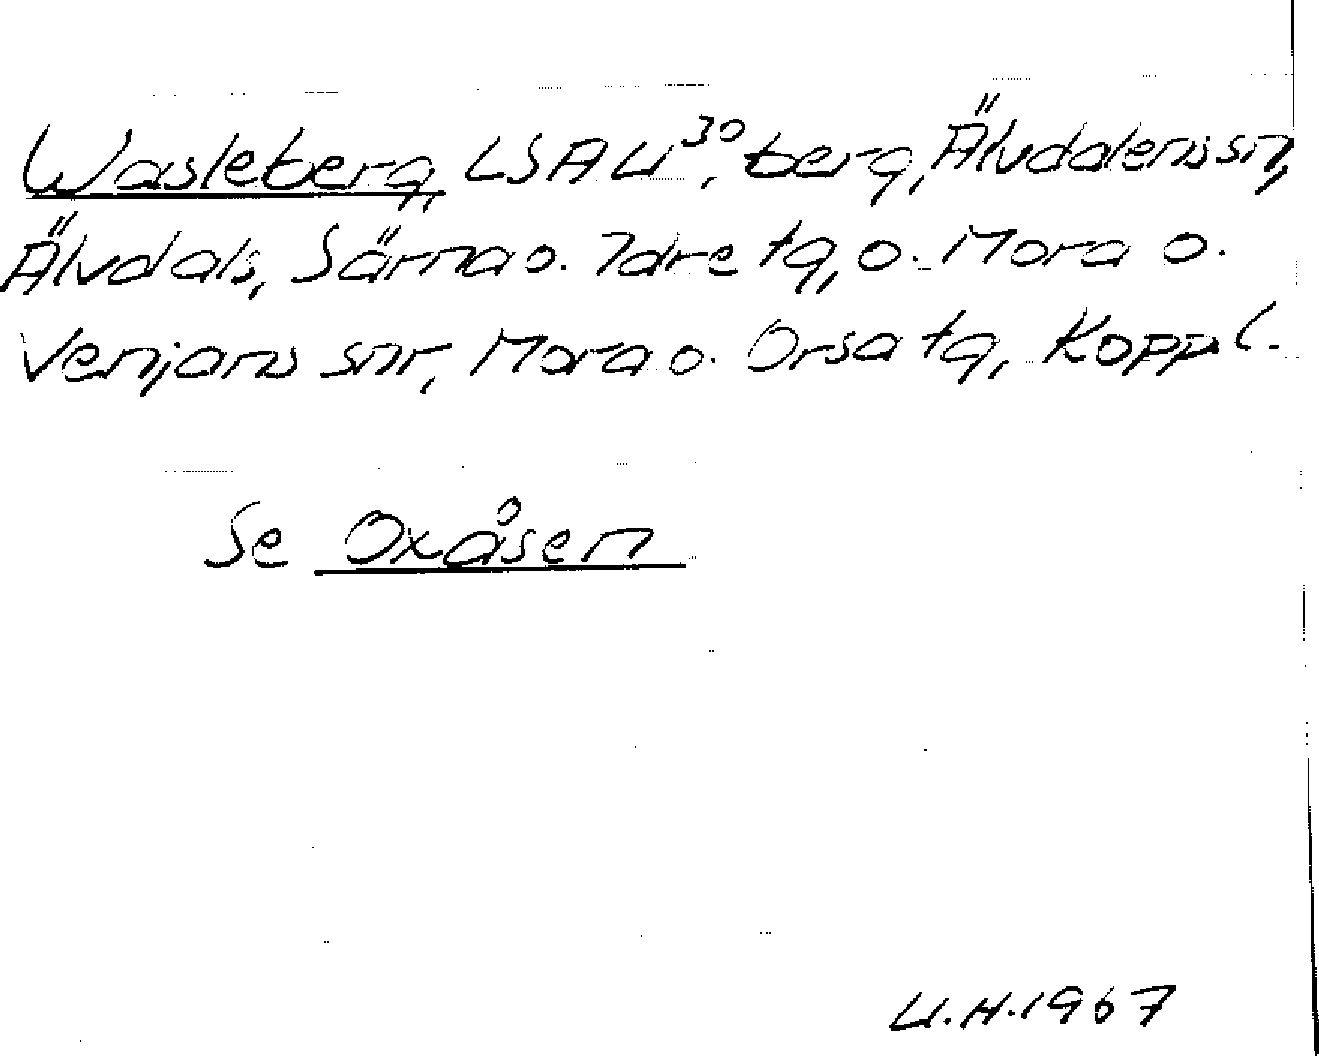 Wasleberg, LSA U³⁰, berg, Älvdalens sn,
Älvdals, Särna o. Idre tg, o. Mora o.
Venjans snr, Mora o. Orsa tg, Koppl.
Se Oxåsen
U.H.1967